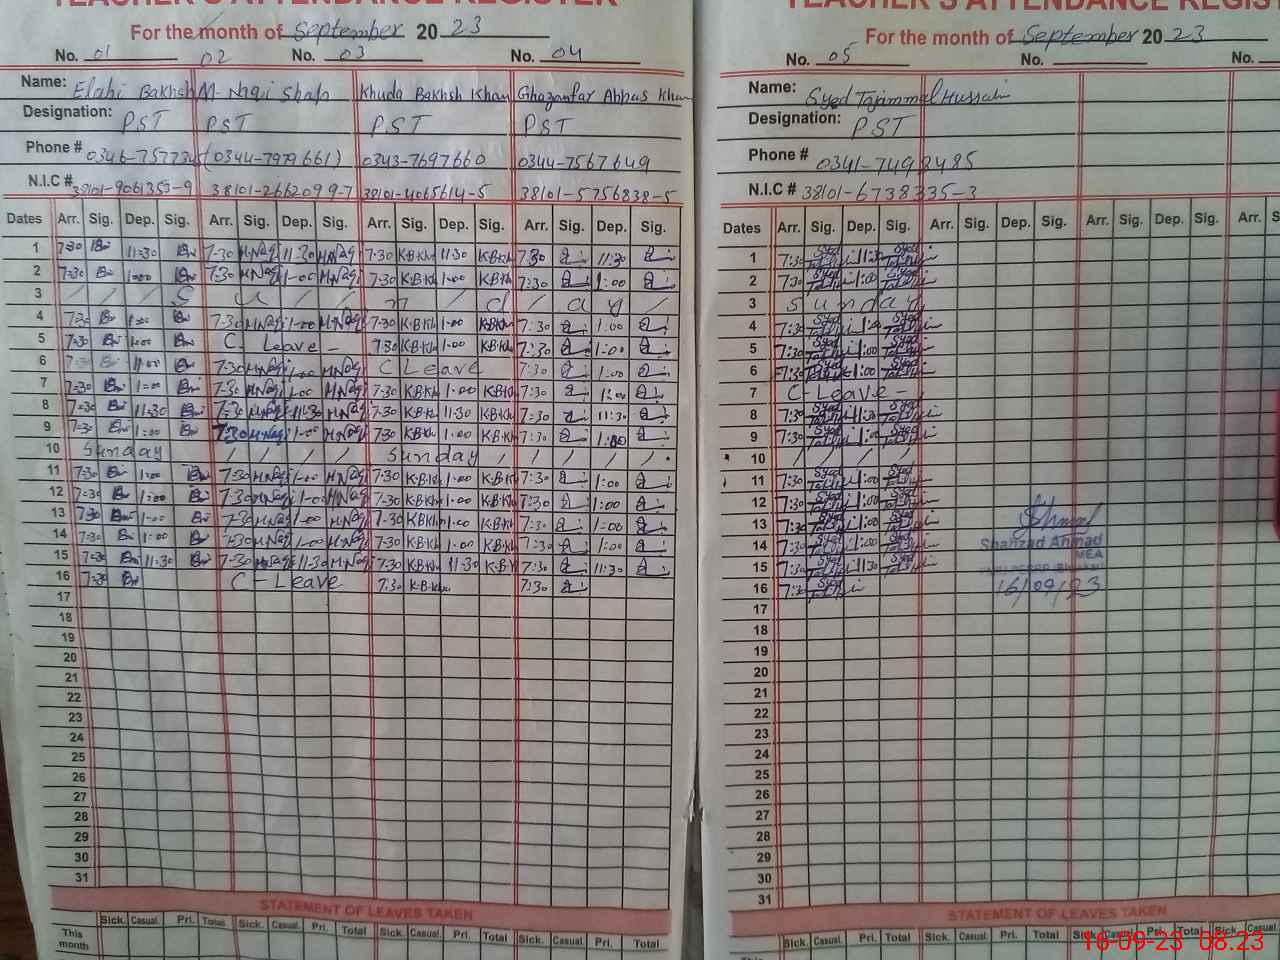 TEACHER'S ATTENDANCE REGISTER
For the month of September 20 23
No. 01 02 No. 03 No. 04
Name: Elahi Bakhsh M. Naqi Shah Khuda Bakhsh Khan Ghazanfar Abbas Khan
Designation: PST PST PST PST
Phone # (0344-7979661) 0343-7697660 0344-7567649
N.I.C # 38101-9061353-9 38101-2662099-7 38101-4065614-5 38101-5756838-5
Dates Arr. Sig. Dep. Sig. Arr. Sig. Dep. Sig. Arr. Sig. Dep. Sig. Arr. Sig. Dep. Sig.
1 7-30 11-30 7-30 M.Naqi 11-30 M.Naqi 7-30 K.B.Kh 11-30 K.B.Kh 7:30 11:30
2 7-30 1-00 7-30 M.Naqi 1-00 M.Naqi 7-30 K.B.Kh 1-00 K.B.Kh 7:30 1:00
3 / / / S u / / n / d / a y /
4 7-30 1-00 7-30 M.Naqi 1-00 M.Naqi 7-30 K.B.Kh 1-00 K.B.Kh 7:30 1:00
5 7-30 1-00 C- Leave - 7-30 K.B.Kh 1-00 K.B.Kh 7:30 1:00
6 11-00 7-30 M.Naqi 1-00 M.Naqi C Leave 7:30 1:00
7 7-30 1-00 7-30 M.Naqi 1-00 M.Naqi 7-30 K.B.Kh 1-00 K.B.Kh 7:30 1:00
8 7-30 11-30 7-30 M.Naqi 11-30 M.Naqi 7-30 K.B.Kh 11-30 K.B.Kh 7:30 11:30
9 7-30 1:00 7-30 M.Naqi 1-00 M.Naqi 7-30 K.B.Kh 1-00 K.B.Kh 7:30 1:00
10 Sunday / / / / Sunday / / / /
11 7-30 1-00 7-30 M.Naqi 1-00 M.Naqi 7-30 K.B.Kh 1-00 K.B.Kh 7:30 1:00
12 7-30 1:00 7-30 M.Naqi 1-00 M.Naqi 7-30 K.B.Kh 1-00 K.B.Kh 7:30 1:00
13 7-30 1-00 7-30 M.Naqi 1-00 M.Naqi 7-30 K.B.Kh 1-00 K.B.Kh 7:30 1:00
14 7-30 1:00 7-30 M.Naqi 1-00 M.Naqi 7-30 K.B.Kh 1-00 K.B.Kh 7:30 1:00
15 7-30 11-30 7-30 M.Naqi 11-30 M.Naqi 7-30 K.B.Kh 11-30 K.B.Kh 7:30 11:30
16 7-30 C-Leave 7-30 K.B.Kh 7:30
17
18
19
20
21
22
23
24
25
26
27
28
29
30
31
STATEMENT OF LEAVES TAKEN
Sick. Casual. Pri. Total Sick. Casual. Pri. Total Sick. Casual. Pri. Total Sick. Casual. Pri. Total
This month
TEACHER'S ATTENDANCE REGIST
For the month of September 20 23
No. 05 No. No.
Name: Syed Tajimmal Hussain
Designation: PST
Phone # 0341-749
N.I.C # 38101-6738335-3
Dates Arr. Sig. Dep. Sig. Arr. Sig. Dep. Sig. Arr. Sig. Dep. Sig. Arr. S
1 7:30 Syed 11:30 Syed
2 7:30 Syed 1:00 Syed
3 Sunday
4 7:30 Syed Syed
5 7:30 Syed 1:00 Syed
6 7:30 Syed 1:00 Syed
7 C-Leave
8 7:30 Syed 11:30 Syed
9 7:30 Syed 1:00 Syed
10 / / / /
11 7:30 Syed 1:00 Syed
12 7:30 Syed 1:00 Syed
13 7:30 Syed 1:00 Syed
14 7:30 Syed 1:00 Syed
Shahzad Ahmad
MEA
15 7:30 Syed 11:30 Syed
16 Syed
16/09/23
17
18
19
20
21
22
23
24
25
26
27
28
29
30
31
STATEMENT OF LEAVES TAKEN
Sick. Casual. Pri. Total Sick. Casual. Pri. Total Sick. Casual. Pri. Total Sick. Casual.
16-09-23 08:23